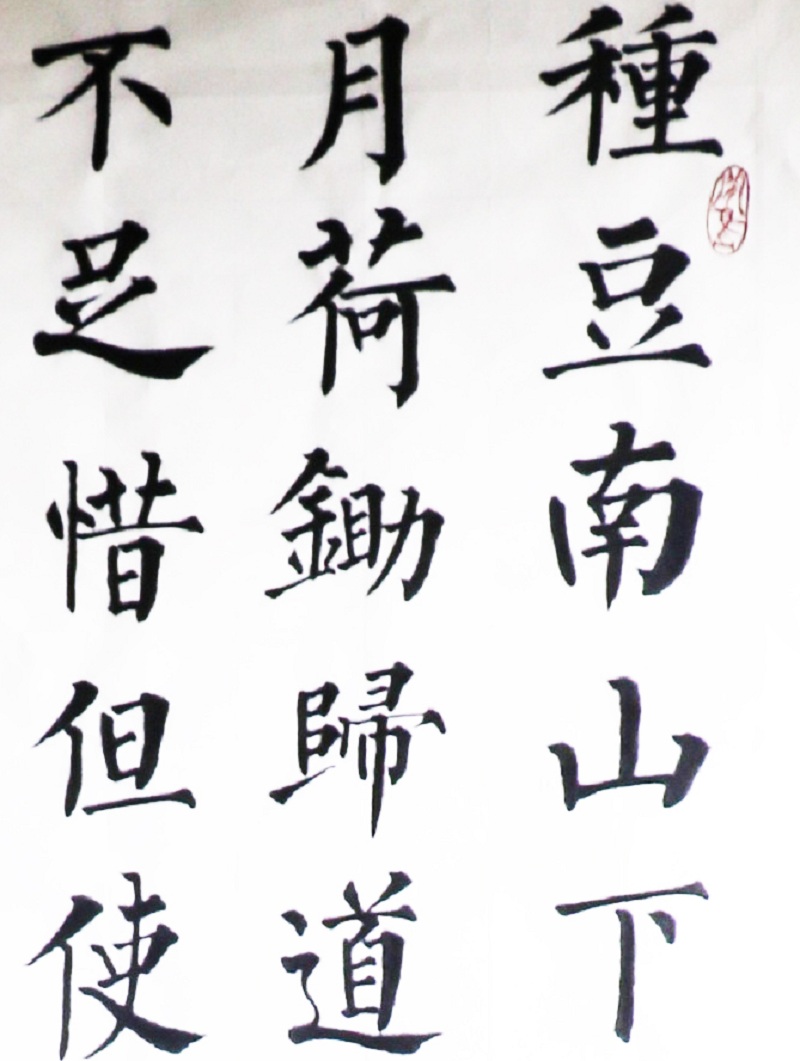 種豆南山下
月荷鋤歸道
不足惜但使